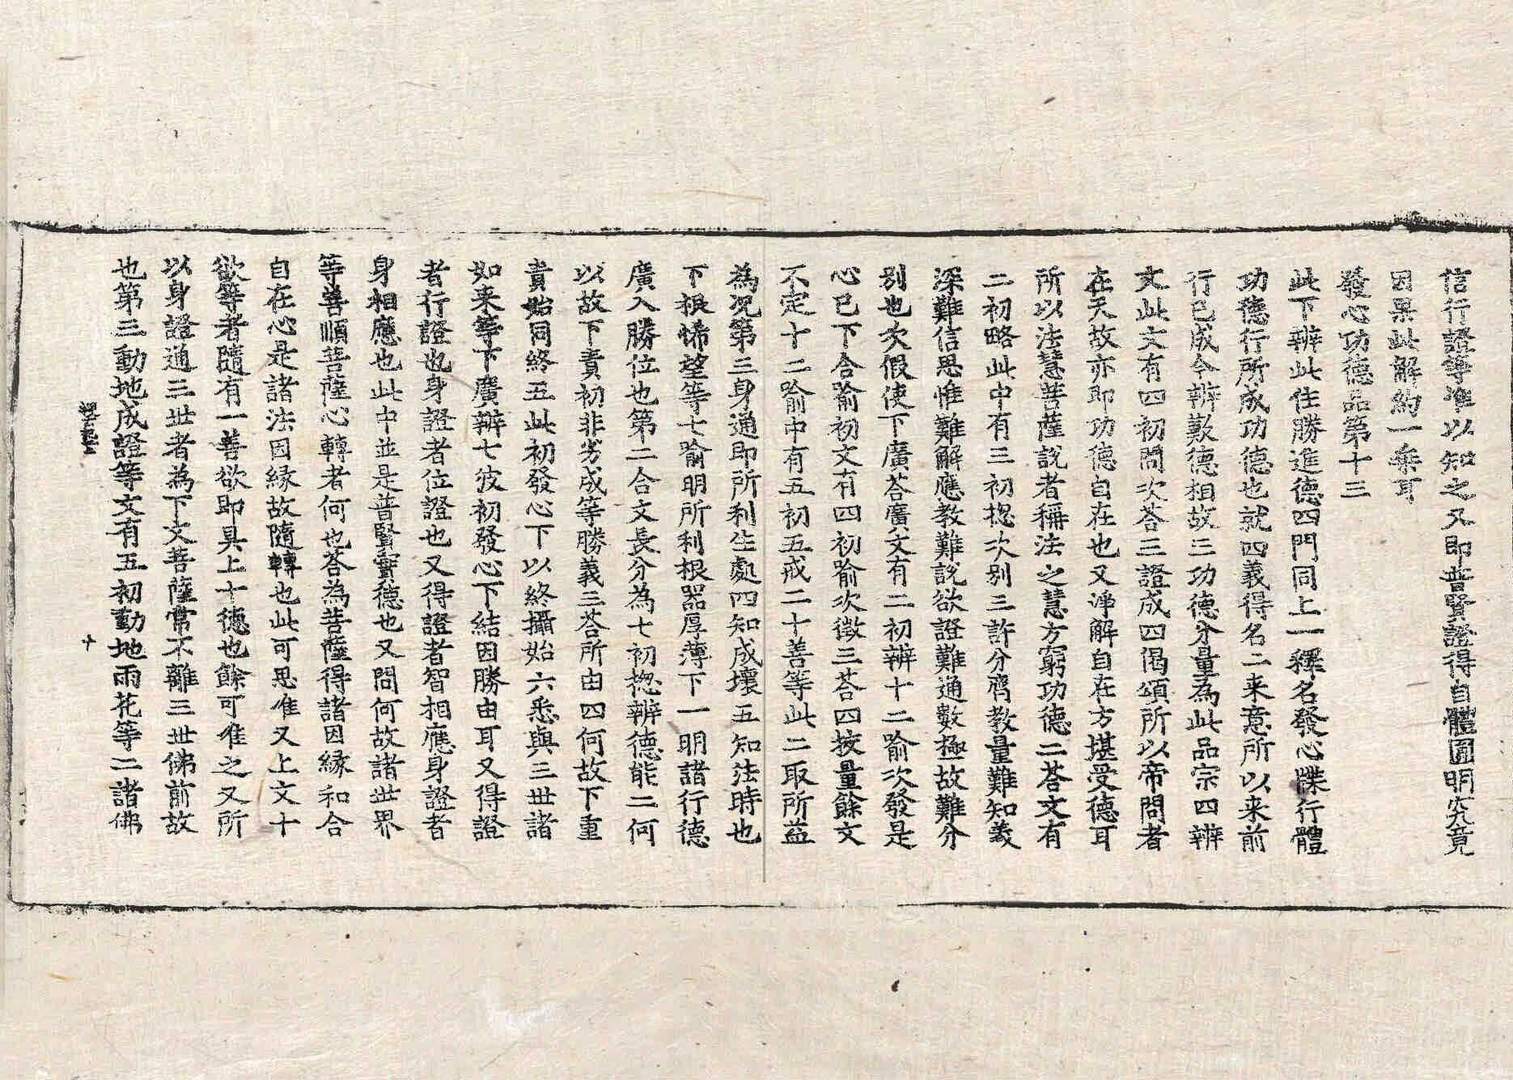 信行證等准以知之又即普賢證得自體圓明究竟
因果此解約一乘耳
發心功德品第十三
此下辨此住勝進德四門同上一釋名發心牒行體
功德行所成功德也就四義得名二来意所以来前
行已成今辨歎德相故三功德分量為此品宗四辨
文此文有四初問次荅三證成四偈頌所以帝問者
在天故亦即功德自在也又淨解自在方堪受德耳
所以法慧菩薩說者稱法之慧方窮功德二荅文有
二初略此中有三初揔次別三許分齊教量難知義
深難信思惟難解應教難說欲證難通數極故難分
別也次假使下廣荅廣文有二初辨十二喻次發是
心已下合喻初文有四初喻次徵三荅四挍量餘文
不定十二喻中有五初五戒二十善等此二取所益
為況第三身通即所利生處四知成壞五知法時也
下根悕望等七喻明所利根器厚薄下一明諸行德
廣入勝位也第二合文長分為七初揔辨德能二何
以故下責初非劣成等勝義三荅所由四何故下重
責始同終五此初發心下以終攝始六悉與三世諸
如来等下廣辨七彼初發心下結因勝由耳又得證
者行證也身證者位證也又得證者智相應身證者
身相應也此中並是普賢實德也又問何故諸世界
等善順菩薩心轉者何也荅為菩薩得諸因緣和合
自在心是諸法因緣故隨轉也此可思准又上文十
欲等者隨有一善欲即具上十德也餘可准之又所
以身證通三世者為下文菩薩常不離三世佛前故
也第三動地成證等文有五初動地雨花等二諸佛
十